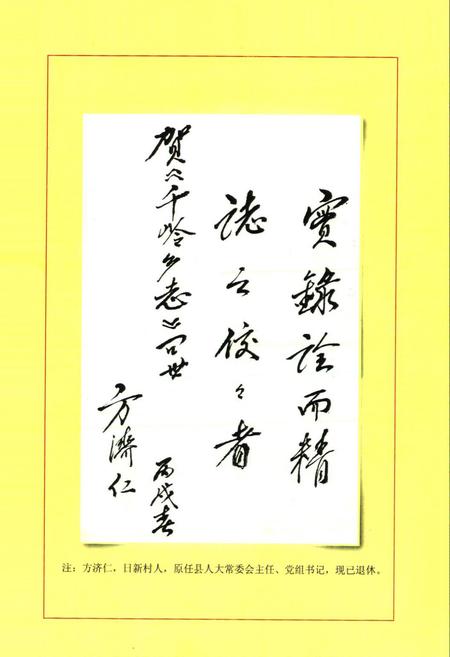 實錄詮而精
誌之佼々者
賀《千岭乡志》问世
丙戌春
方濟仁
注：方济仁，日新村人，原任县人大常委会主任、党组书记，现已退休。